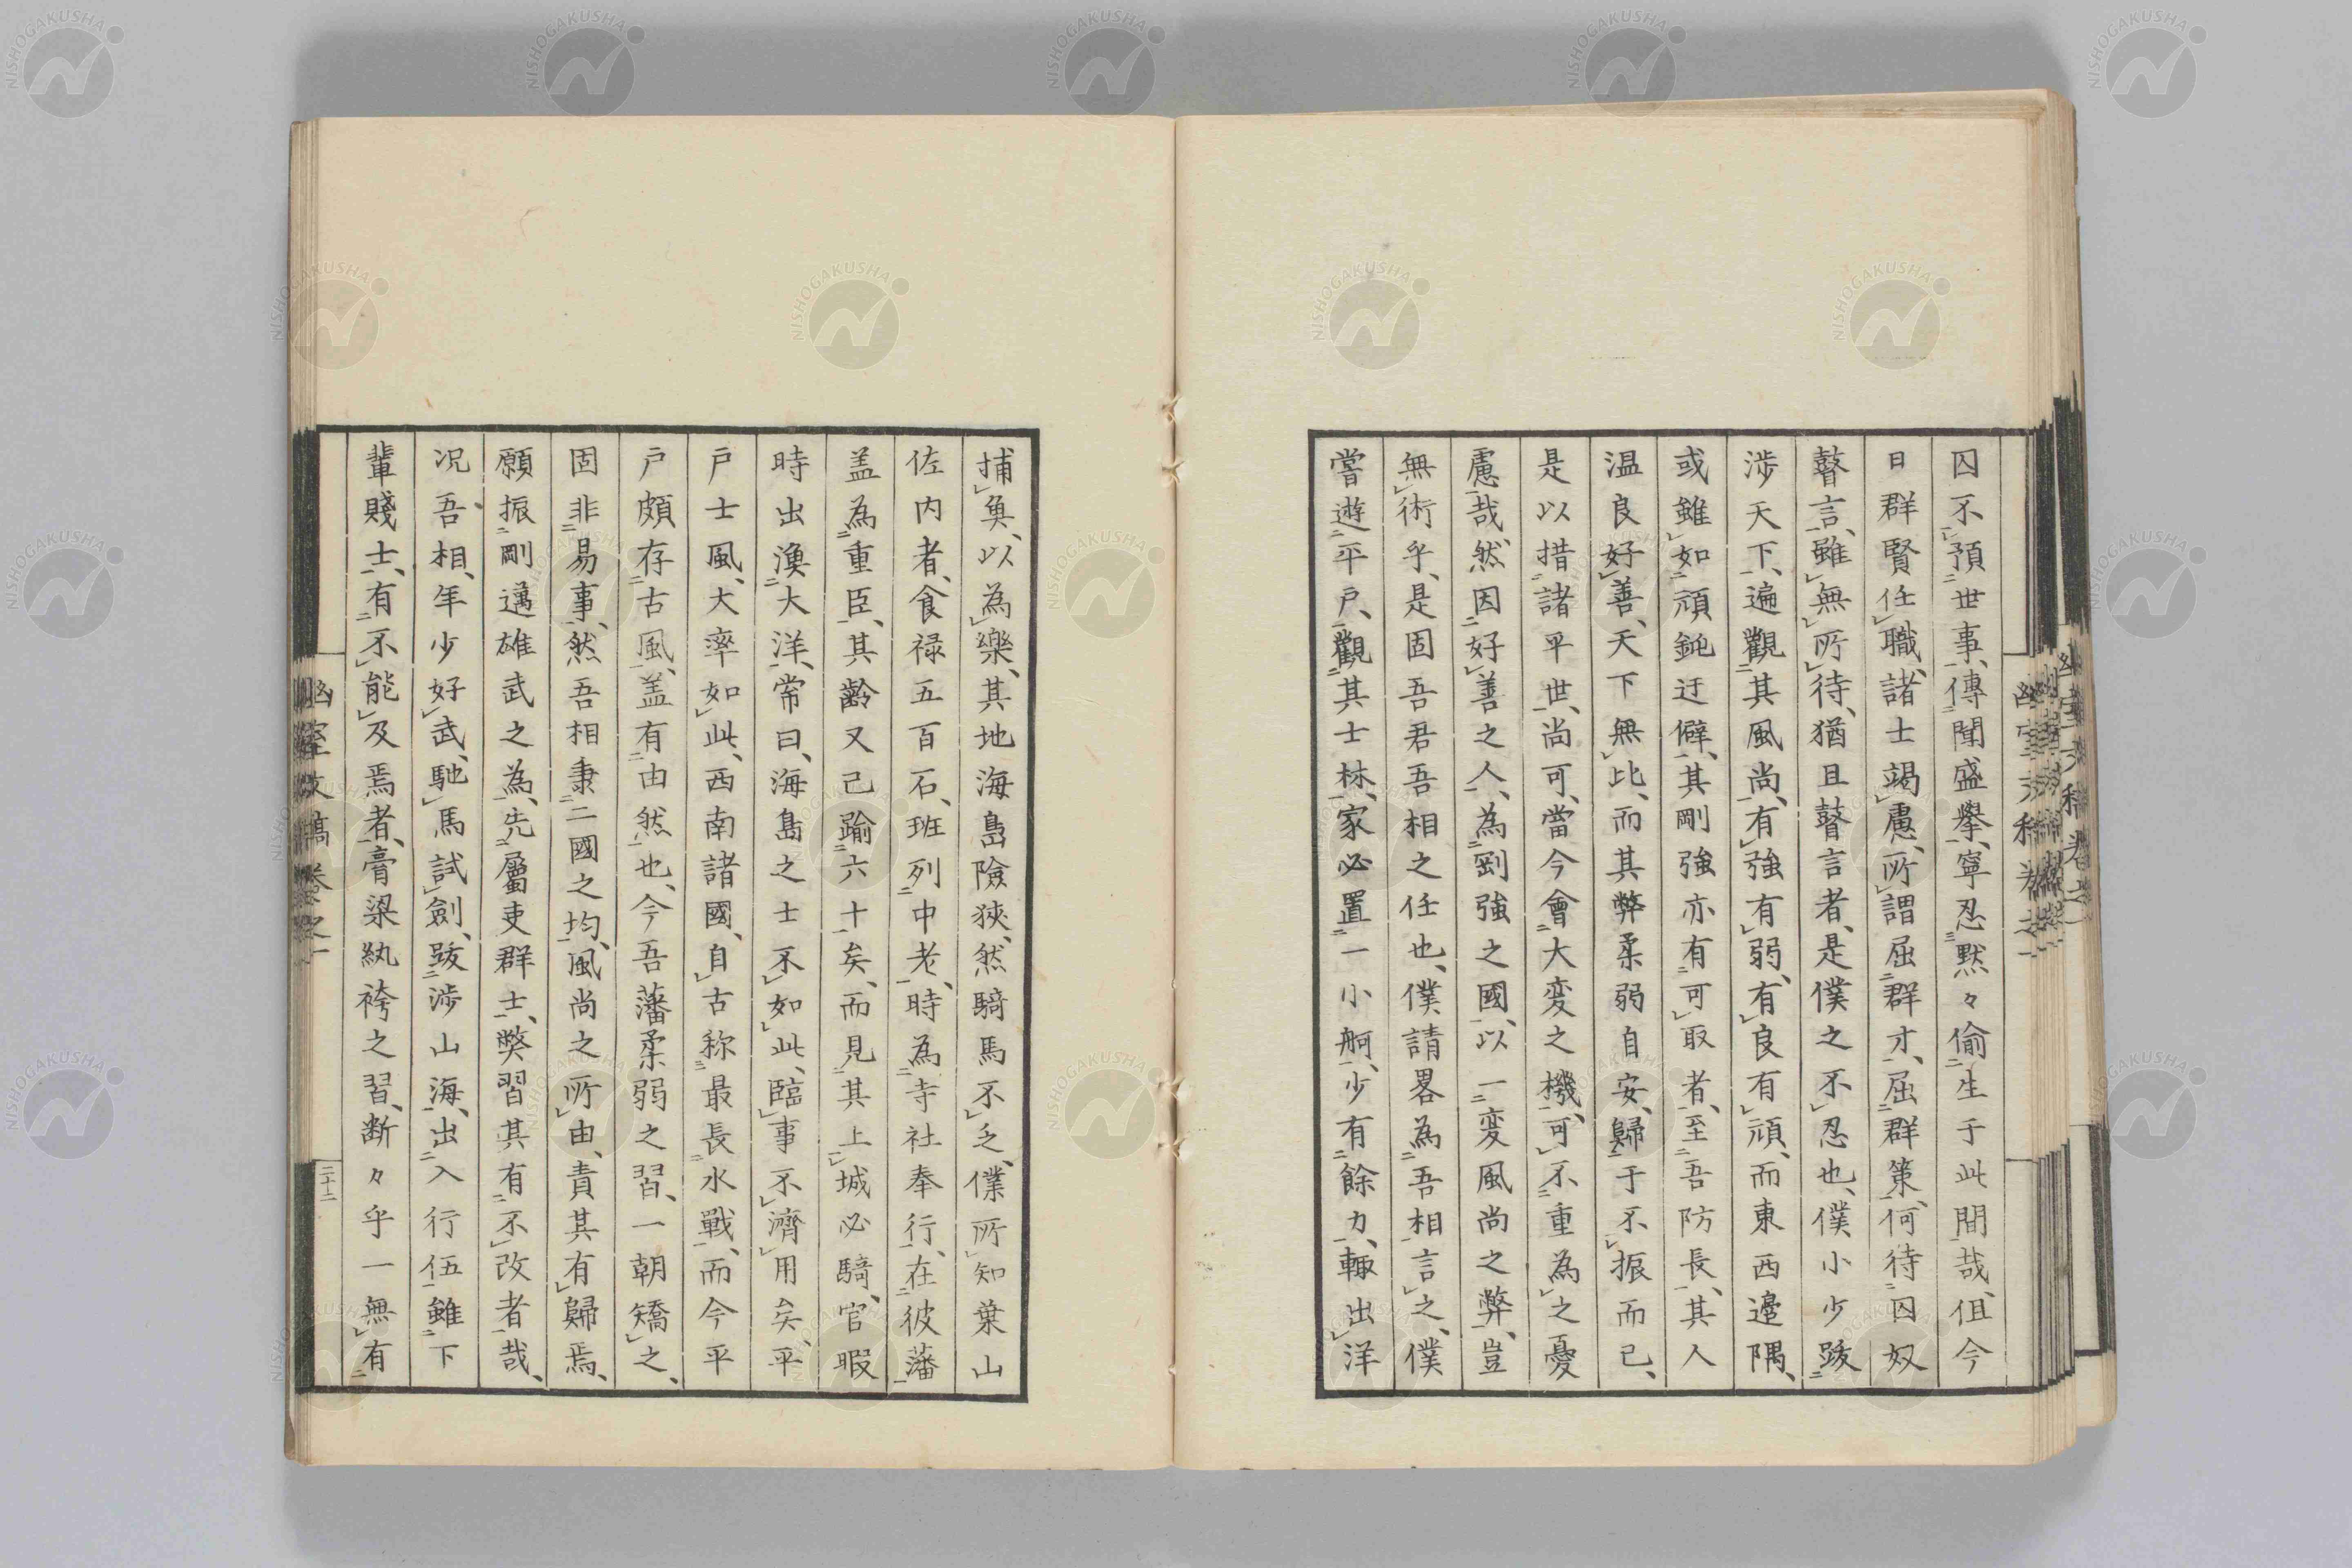 囚不預世事、傳聞盛擧、寧忍黙々偷生于此間哉、但今
日群賢任職、諸士竭慮、所謂屈群才、屈群策、何待囚奴
瞽言、雖無所待、猶且瞽言者、是僕之不忍也、僕小少跋
渉天下、遍觀其風尚、有強有弱、有良有頑、而東西邊隅、
或雖如頑鈍迂僻、其剛強亦有可取者、至吾防長、其人
温良好善、天下無比、而其弊柔弱自安、歸于不振而已、
是以措諸平世、尚可、當今會大変之機、可不重為之憂
慮哉、然因好善之人、為剛強之國、以一変風尚之弊、豈
無術乎、是固吾君吾相之任也、僕請畧為吾相言之、僕
嘗遊平戸、觀其士林、家必置一小舸、少有餘力、輙出洋
捕魚、以為樂、其地海島險狹、然騎馬不乏、僕所知葉山
佐内者、食禄五百石、班列中老、時為寺社奉行、在彼藩
盖為重臣、其齢又已踰六十矣、而見其上城必騎、官暇
時出漁大洋、常曰、海島之士不如此、臨事不濟用矣、平
戸士風、大率如此、西南諸國、自古称最長水戦、而今平
戸頗存古風、盖有由然也、今吾藩柔弱之習、一朝矯之、
固非易事、然吾相秉二國之均、風尚之所由、責其有歸焉、
願振剛邁雄武之為先、屬吏群士、弊習其有不改者哉、
况吾相、年少好武、馳馬試劍、跋渉山海、出入行伍、雖下
輩賤士、有不能及焉者、膏梁紈袴之習、断々乎一無有
幽室文稿卷之一
二十二
NISHOGAKUSHA